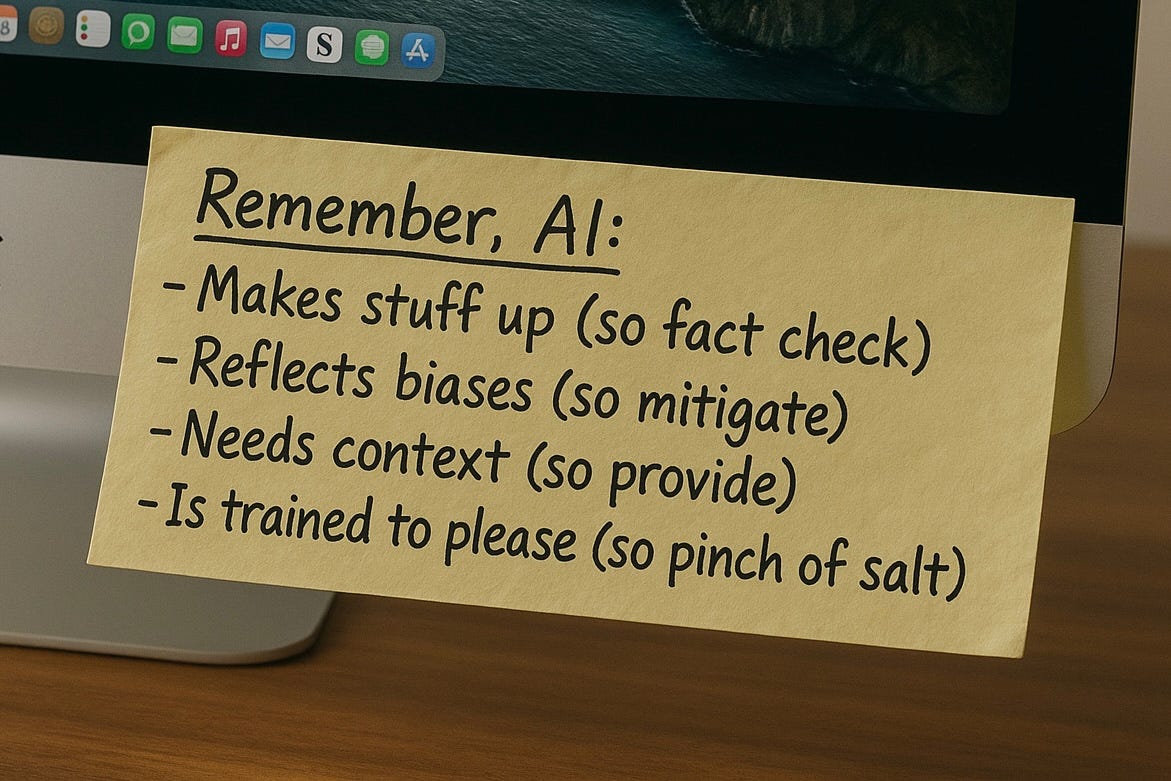 Remember, AI:
- Makes stuff up (so fact check)
- Reflects biases (so mitigate)
- Needs context (so provide)
- Is trained to please (so pinch of salt)
8
S